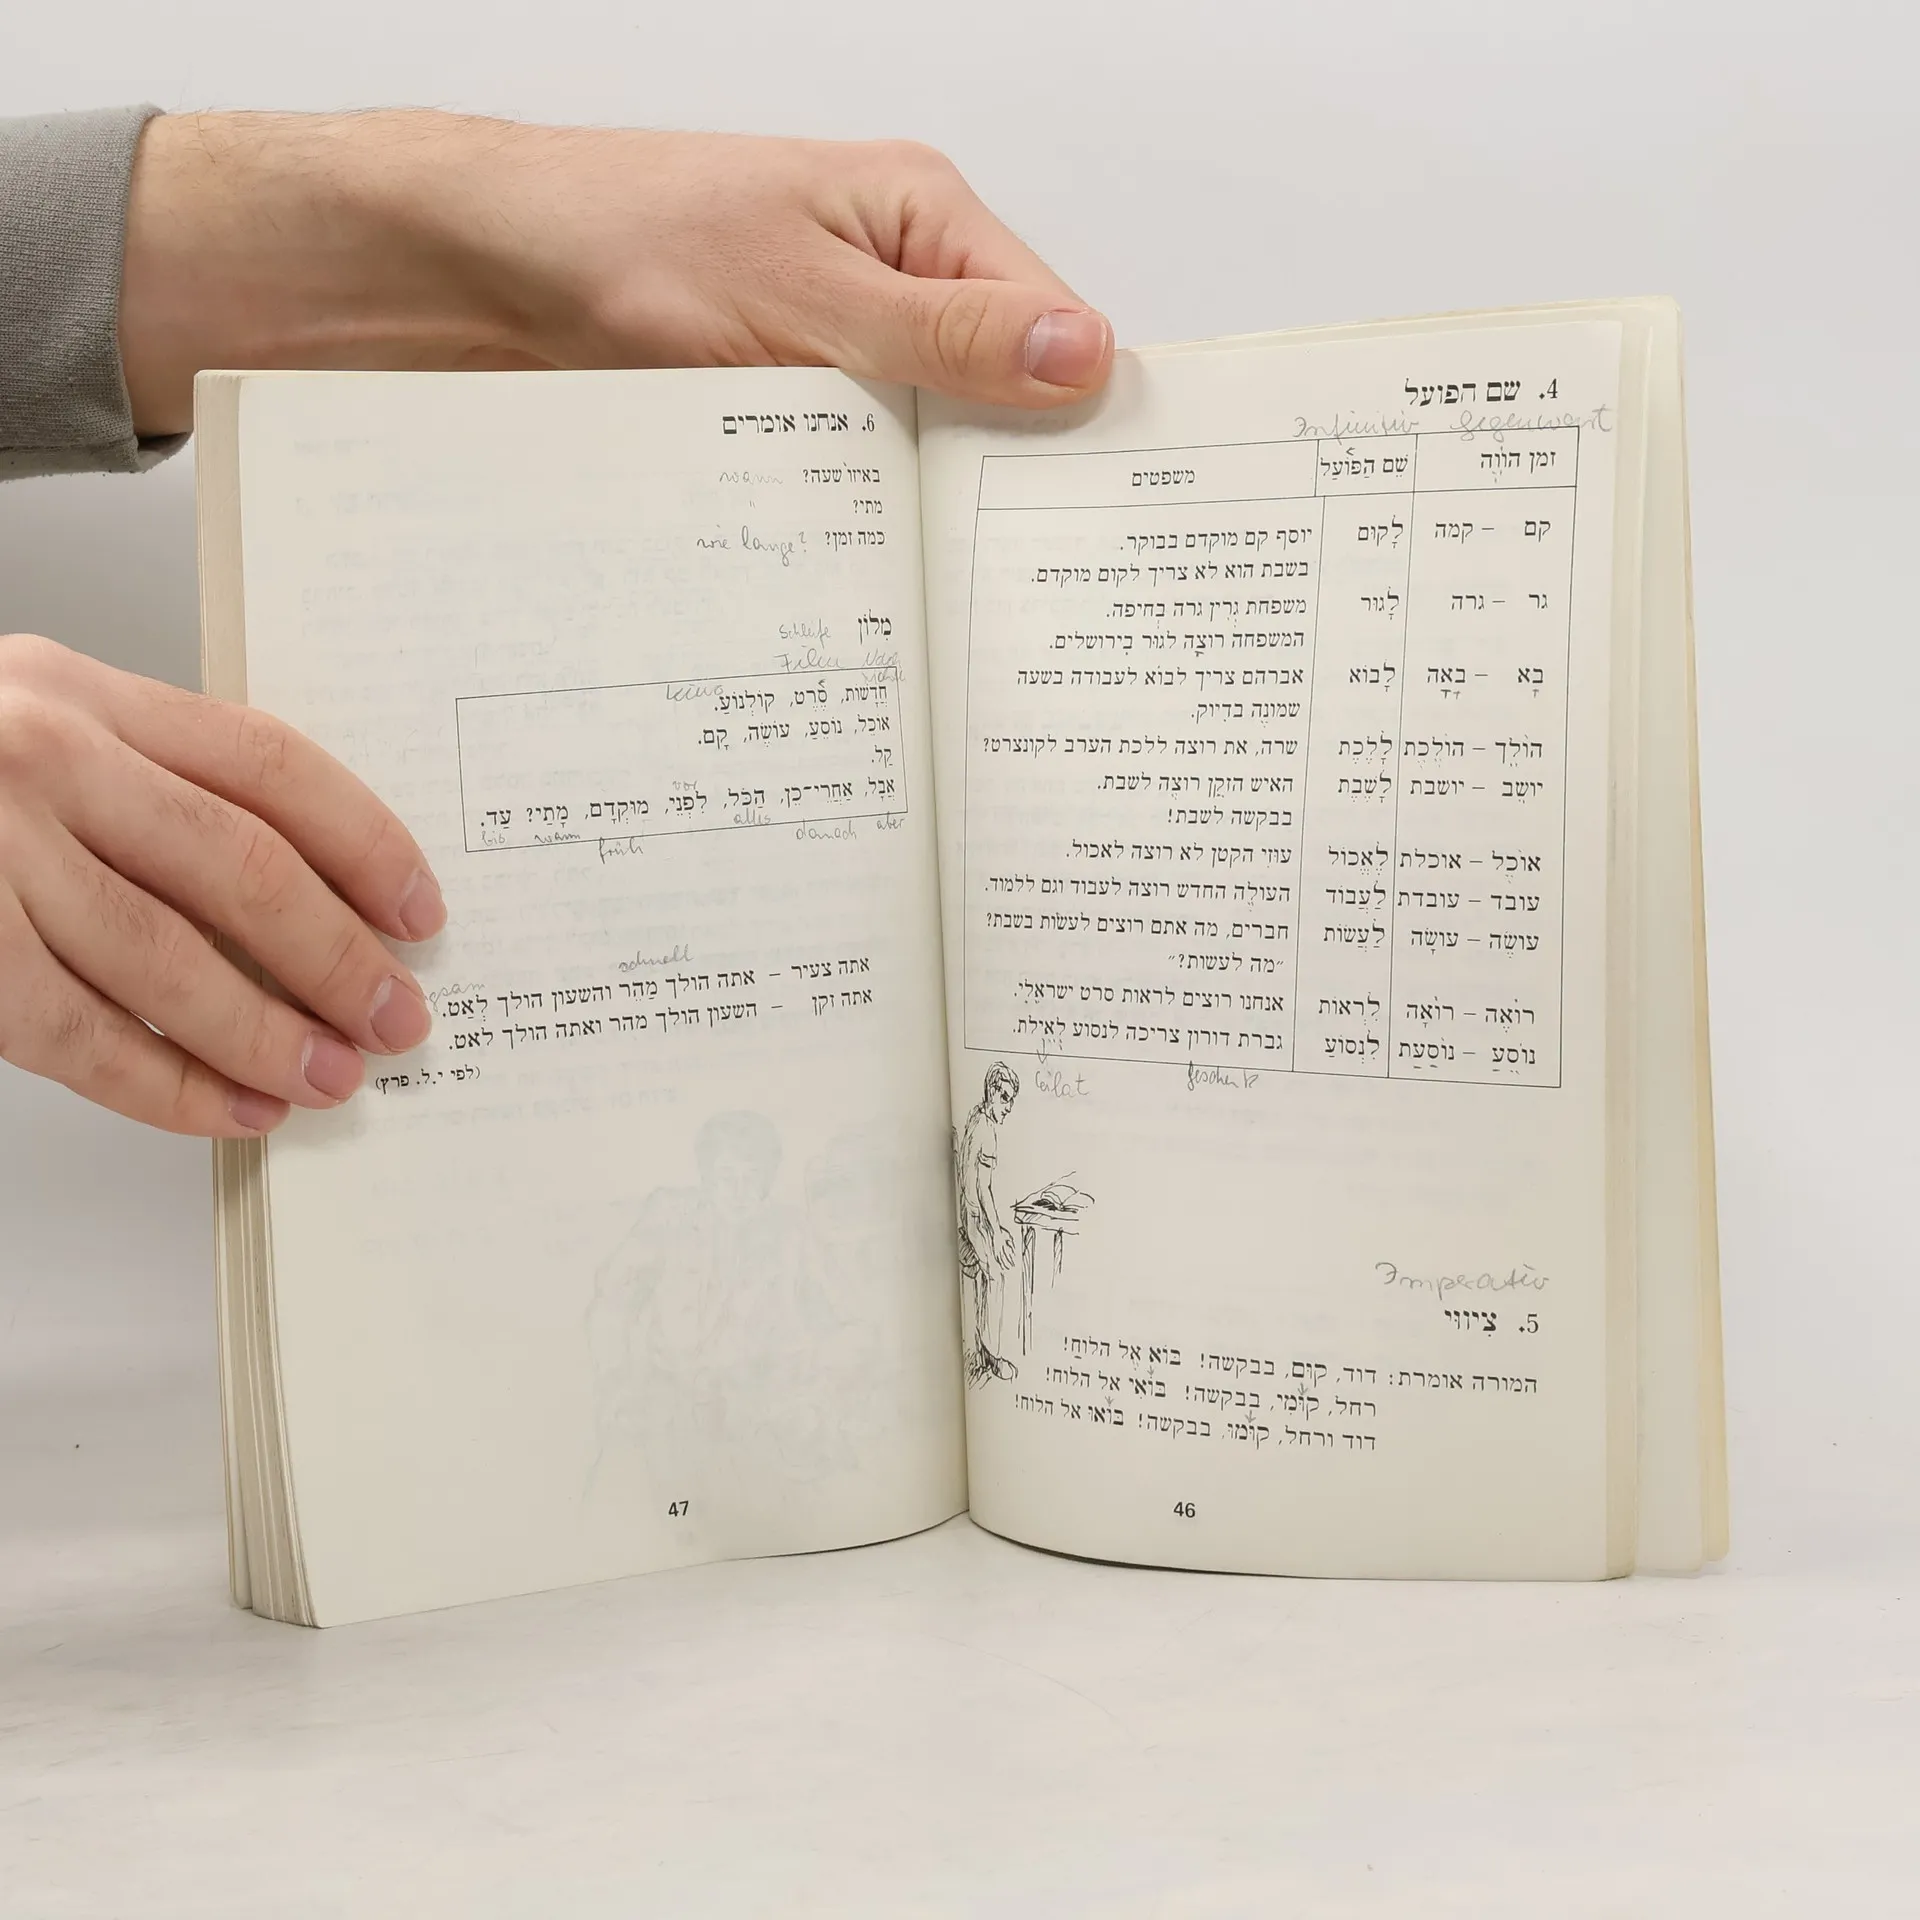 4. שם הפועל
Infinitiv Gegenwart
זמן הוֹוֶה שֵׁם הַפּוֹעַל משפטים
קם – קמה לָקוּם יוסף קם מוקדם בבוקר.
בשבת הוא לא צריך לקום מוקדם.
גר – גרה לָגוּר משפחת גרין גרה בְּחיפה.
המשפחה רוצָה לגור בִּירושלים.
בָּא – בָּאָה לָבוֹא אברהם צריך לבוֹא לעבודה בשעה
שמונֶה בדִיוק.
הוֹלֵך – הוֹלֶכֶת לָלֶכֶת שרה, את רוצה ללכת הערב לקונצרט?
יושֵב – יושבת לָשֶבֶת האיש הזקֵן רוצֶה לשבת.
בבקשה לשבת!
אוֹכֵל – אוכלת לֶאֱכוֹל עוּזִי הקטן לא רוצה לאכול.
עובד – עובדת לַעֲבוֹד העולֶה החדש רוצה לעבוד וגם ללמוד.
עושֶׂה – עושָׂה לַעֲשׂוֹת חברים, מה אתם רוצים לעשׂות בשבת?
״מה לעשות?״
רוֹאֶה – רוֹאָה לִרְאוֹת אנחנו רוצים לראות סרט ישראֵלִי.
נוֹסֵעַ – נוֹסַעַת לִנְסוֹעַ גברת דורון צריכה לנסוע לְאֵילת.
Eilat
Imperativ
5. צִיווּי
המורה אומרת: דוד, קוּם, בבקשה! בּוֹא אֶל הלוּחַ!
רחל, קוּמִי, בבקשה! בּוֹאִי אל הלוח!
דוד ורחל, קוּמוּ, בבקשה! בּוֹאוּ אל הלוח!
46
6. אנחנו אומרים
באיזו שעה? wann
מתי? "
כמה זמן? wie lange?
מִלוֹן Schleife
Film
Kino
חֲדָשׁוֹת, סֶרֶט, קוֹלְנוֹעַ.
אוֹכֵל, נוֹסֵעַ, עוֹשֶׂה, קָם.
קַל.
vor
אֲבָל, אַחֲרֵי־כֵן, הַכֹּל, לִפְנֵי, מוּקְדָם, מָתַי? עַד.
aber danach alles früh wann bis
schnell
אתה צעיר – אתה הולך מַהֵר והשעון הולך לְאַט.
אתה זקן – השעון הולך מהר ואתה הולך לאט.
(לפי י.ל. פרץ)
47